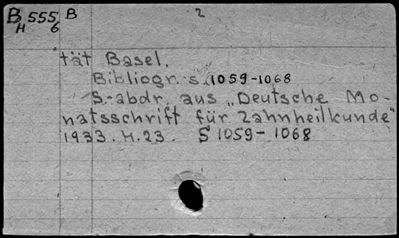 B 555 B 2
H 6
tät Basel.
Bibliogr. s. 1059-1068
S.-abdr. aus „Deutsche Mo-
natsschrift für Zahnheilkunde"
1933. H. 23. S 1059-1068